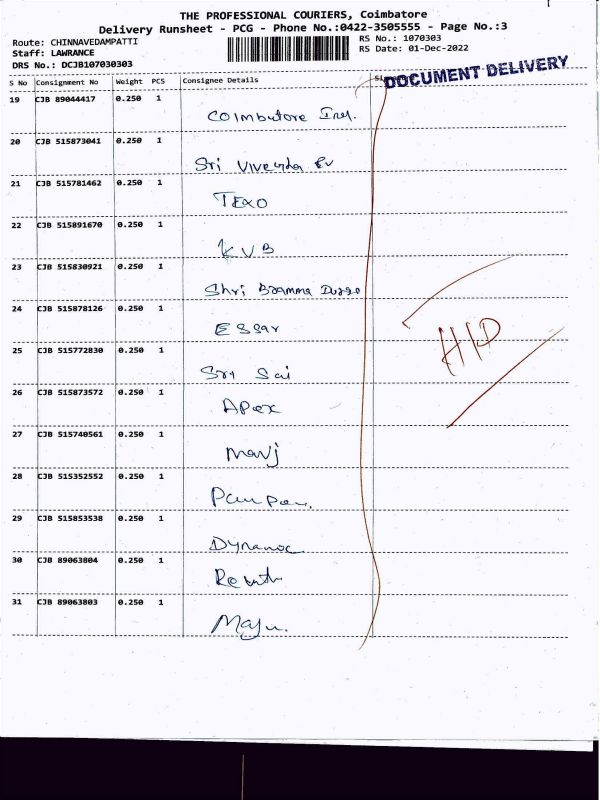 THE PROFESSIONAL COURIERS, Coimbatore
Delivery Runsheet - PCG - Phone No.:0422-3505555 - Page No.:3
Route: CHINNAVEDAMPATTI
Staff: LAWRANCE
DRS No.: DCJB107030303
RS No.: 1070303
RS Date: 01-Dec-2022
S No Consignment No Weight PCS Consignee Details
DOCUMENT DELIVERY
19 CJB 89044417 0.250 1
Coimbutore
20 CJB 515873041 0.250 1
Sri
21 CJB 515781462 0.250 1
TEXO
22 CJB 515891670 0.250 1
KVB
23 CJB 515830921 0.250 1
Shri Bramma
24 CJB 515878126 0.250 1
Essar
25 CJB 515772830 0.250 1
Sri Sai
H/D
26 CJB 515873572 0.250 1
Apex
27 CJB 515740561 0.250 1
28 CJB 515352552 0.250 1
29 CJB 515853538 0.250 1
30 CJB 89063804 0.250 1
31 CJB 89063803 0.250 1